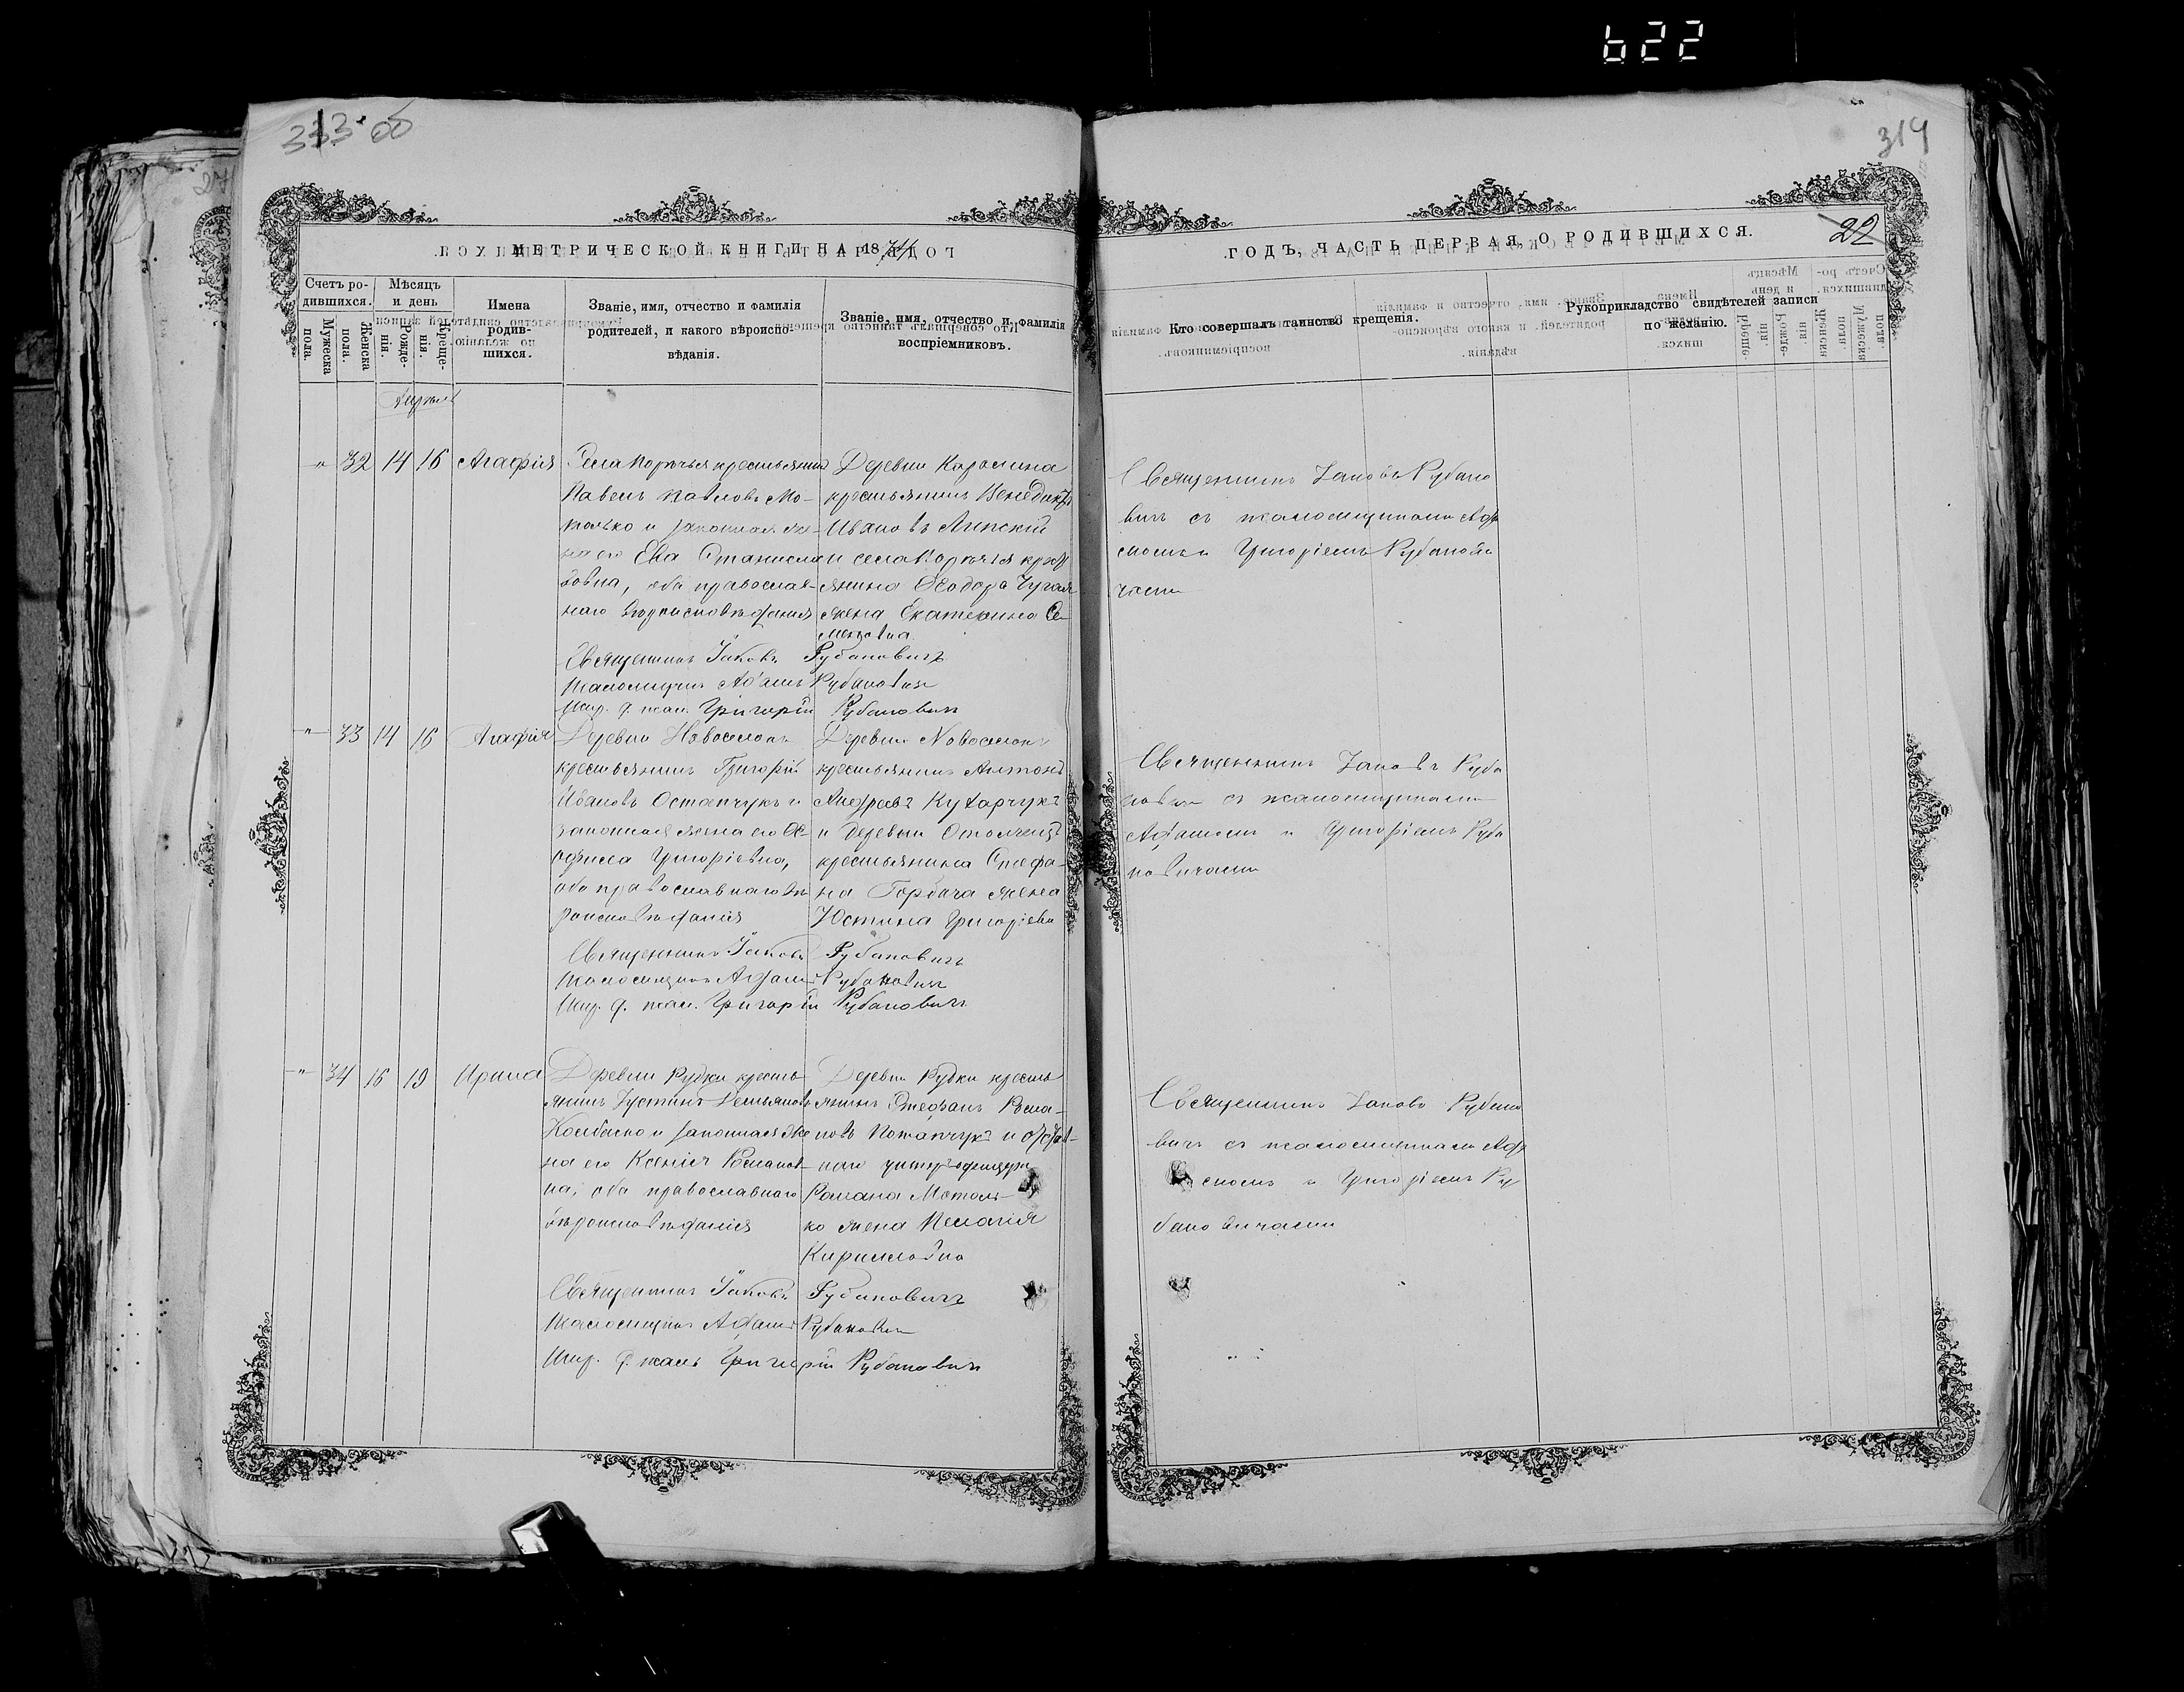 622
313 об
314
22
МЕТРИЧЕСКОЙ КНИГИ НА 1874
ГОДЪ, ЧАСТЬ ПЕРВАЯ, О РОДИВШИХСЯ.
Счетъ родившихся.
Мужеска пола.
Женска пола.
Мѣсяцъ и день
Рожденія.
Крещенія.
Имена родившихся.
Званіе, имя, отчество и фамилія
родителей, и какого вѣроиспо-
вѣданія.
Званіе, имя, отчество и фамилія
воспріемниковъ.
Кто совершалъ таинство крещенія.
Рукоприкладство свидѣтелей записи
по желанію.
Апрель
" 32 14 16 Агафія
Села Поречья крестьянинъ
Павелъ Павловъ Мо-
только и законная же-
на его Ева Станисла-
вовна, оба православ-
наго вѣроисповѣданія
Деревни
крестьянинъ Венедиктъ
Ивановъ Липскій
и села Поречья крест
янина Ѳеодора
жена Екатерина Се-
меновна
Священникъ Іаковъ Рубановичъ
Псаломщикъ Адамъ Рубановичъ
Григорій Рубановичъ
Священникъ Іаковъ Рубано
вичъ съ псаломщиками Ада
момъ и Григоріемъ Рубанови
чами
" 33 14 16 Агафія
Деревни Новоселокъ
крестьянинъ Григорій
Ивановъ Остапчукъ и
законная жена его
Григоріевна,
оба православнаго вѣ
роисповѣданія
Деревни Новоселокъ
крестьянинъ Антонъ
Андреевъ Кухарчукъ
и деревни
крестьянина Стефа-
на Горбача жена
Юстина Григоріевна
Священникъ Іаковъ Рубановичъ
Псаломщикъ Адамъ Рубановичъ
Григорій Рубановичъ
Священникъ Іаковъ Руба
новичъ съ псаломщиками
Адамомъ и Григоріемъ Руба
новичами
" 34 16 19 Ирина
Деревни Рудки кресть
янинъ Іустинъ
и законная же
на его Ксенія Романов
на, оба православнаго
вѣроисповѣданія
Деревни Рудки кресть
янинъ Стефанъ Рома-
новъ Потапчукъ и отстав-
наго унтеръ-офицера
Романа Мотоль-
ко жена Пелагія
Кирилловна
Священникъ Іаковъ Рубановичъ
Псаломщикъ Адамъ Рубановичъ
Григорій Рубановичъ
Священникъ Іаковъ Рубано
вичъ съ псаломщиками Ада
момъ и Григоріемъ Ру
бановичами